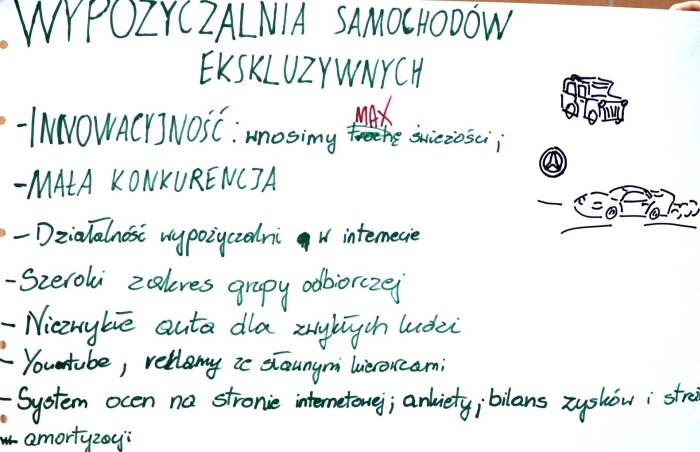 WYPOŻYCZALNIA SAMOCHODÓW
EKSKLUZYWNYCH
- INNOWACYJNOŚĆ : wnosimy trochę MAX świeżości ;
- MAŁA KONKURENCJA
- Działalność wypożyczalni w internecie
- Szeroki zakres grupy odbiorczej
- Niezwykłe auta dla zwykłych ludzi
- Youtube, reklamy ze sławnymi kierowcami
- System ocen na stronie internetowej; ankiety; bilans zysków i stra
amortyzacji